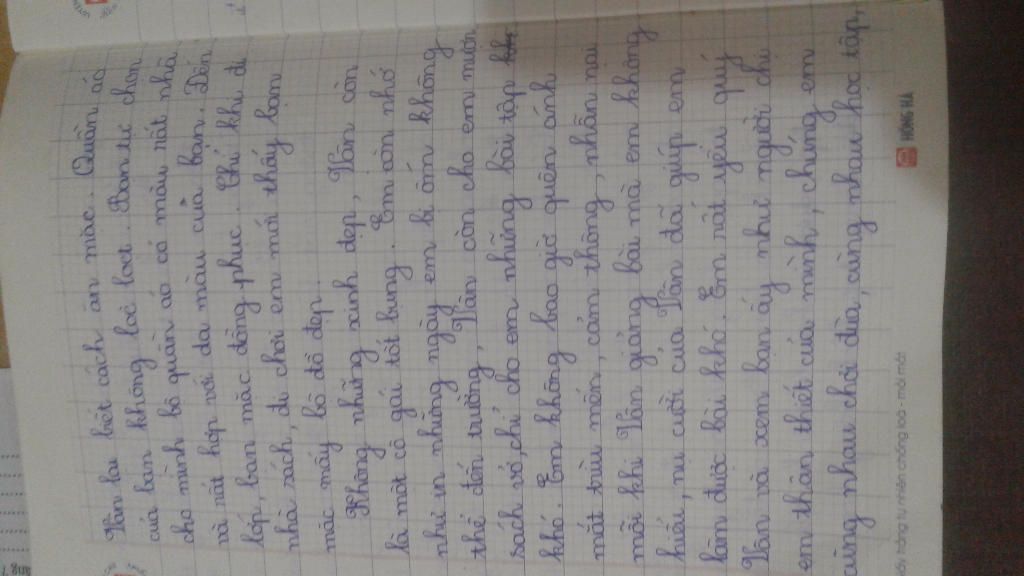 Vân lại biết cách ăn mặc. Quần áo
của bạn không loè loẹt. Bạn tự chọn
cho mình bộ quần áo có màu rất nhã
và rất hợp với da màu của bạn. Đến
lớp, bạn mặc đồng phục. Chỉ khi đi
nhà sách, đi chơi em mới thấy bạn
mặc mấy bộ đồ đẹp.
Không những xinh đẹp, Vân còn
là một cô gái tốt bụng. Em còn nhớ
như in những ngày em bị ốm không
thể đến trường, Vân còn cho em mượn
sách vở, chỉ cho em những bài tập
khó. Em không bao giờ quên ánh
mắt trìu mến, cảm thông, nhẫn nại
mỗi khi Vân giảng bài mà em không
hiểu, nụ cười của Vân đã giúp em
làm được bài khó. Em rất yêu quý
Vân và xem bạn ấy như người chị
em thân thiết của mình, chúng em
cùng nhau chơi đùa, cùng nhau học tập,
HỒNG HÀ
Giấy trắng tự nhiên chống loá - mỏi mắt